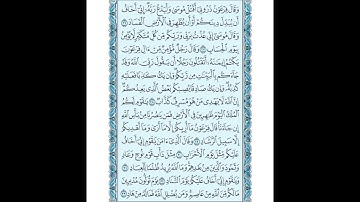 وَقَالَ فِرْعَوْنُ ذَرُونِي أَقْتُلْ مُوسَىٰ وَلْيَدْعُ رَبَّهُ إِنِّي أَخَافُ
أَن يُبَدِّلَ دِينَكُمْ أَوْ أَن يُظْهِرَ فِي ٱلْأَرْضِ ٱلْفَسَادَ ٢٦
وَقَالَ مُوسَىٰ إِنِّي عُذْتُ بِرَبِّي وَرَبِّكُم مِّن كُلِّ مُتَكَبِّرٍ لَّا يُؤْمِنُ
بِيَوْمِ ٱلْحِسَابِ ٢٧ وَقَالَ رَجُلٌ مُّؤْمِنٌ مِّنْ ءَالِ فِرْعَوْنَ
يَكْتُمُ إِيمَٰنَهُ أَتَقْتُلُونَ رَجُلًا أَن يَقُولَ رَبِّيَ ٱللَّهُ وَقَدْ
جَآءَكُم بِٱلْبَيِّنَٰتِ مِن رَّبِّكُمْ وَإِن يَكُ كَٰذِبًا فَعَلَيْهِ
كَذِبُهُ وَإِن يَكُ صَادِقًا يُصِبْكُم بَعْضُ ٱلَّذِي يَعِدُكُمْ
إِنَّ ٱللَّهَ لَا يَهْدِي مَنْ هُوَ مُسْرِفٌ كَذَّابٌ ٢٨ يَٰقَوْمِ لَكُمُ
ٱلْمُلْكُ ٱلْيَوْمَ ظَٰهِرِينَ فِي ٱلْأَرْضِ فَمَن يَنصُرُنَا مِن بَأْسِ ٱللَّهِ
إِن جَآءَنَا قَالَ فِرْعَوْنُ مَآ أُرِيكُمْ إِلَّا مَآ أَرَىٰ وَمَآ أَهْدِيكُمْ
إِلَّا سَبِيلَ ٱلرَّشَادِ ٢٩ وَقَالَ ٱلَّذِيٓ ءَامَنَ يَٰقَوْمِ إِنِّيٓ أَخَافُ
عَلَيْكُم مِّثْلَ يَوْمِ ٱلْأَحْزَابِ ٣٠ مِثْلَ دَأْبِ قَوْمِ نُوحٍ وَعَادٍ
وَثَمُودَ وَٱلَّذِينَ مِن بَعْدِهِمْ وَمَا ٱللَّهُ يُرِيدُ ظُلْمًا لِّلْعِبَادِ ٣١
وَيَٰقَوْمِ إِنِّيٓ أَخَافُ عَلَيْكُمْ يَوْمَ ٱلتَّنَادِ ٣٢ يَوْمَ تُوَلُّونَ مُدْبِرِينَ
مَا لَكُم مِّنَ ٱللَّهِ مِنْ عَاصِمٍ وَمَن يُضْلِلِ ٱللَّهُ فَمَا لَهُ مِنْ هَادٍ ٣٣